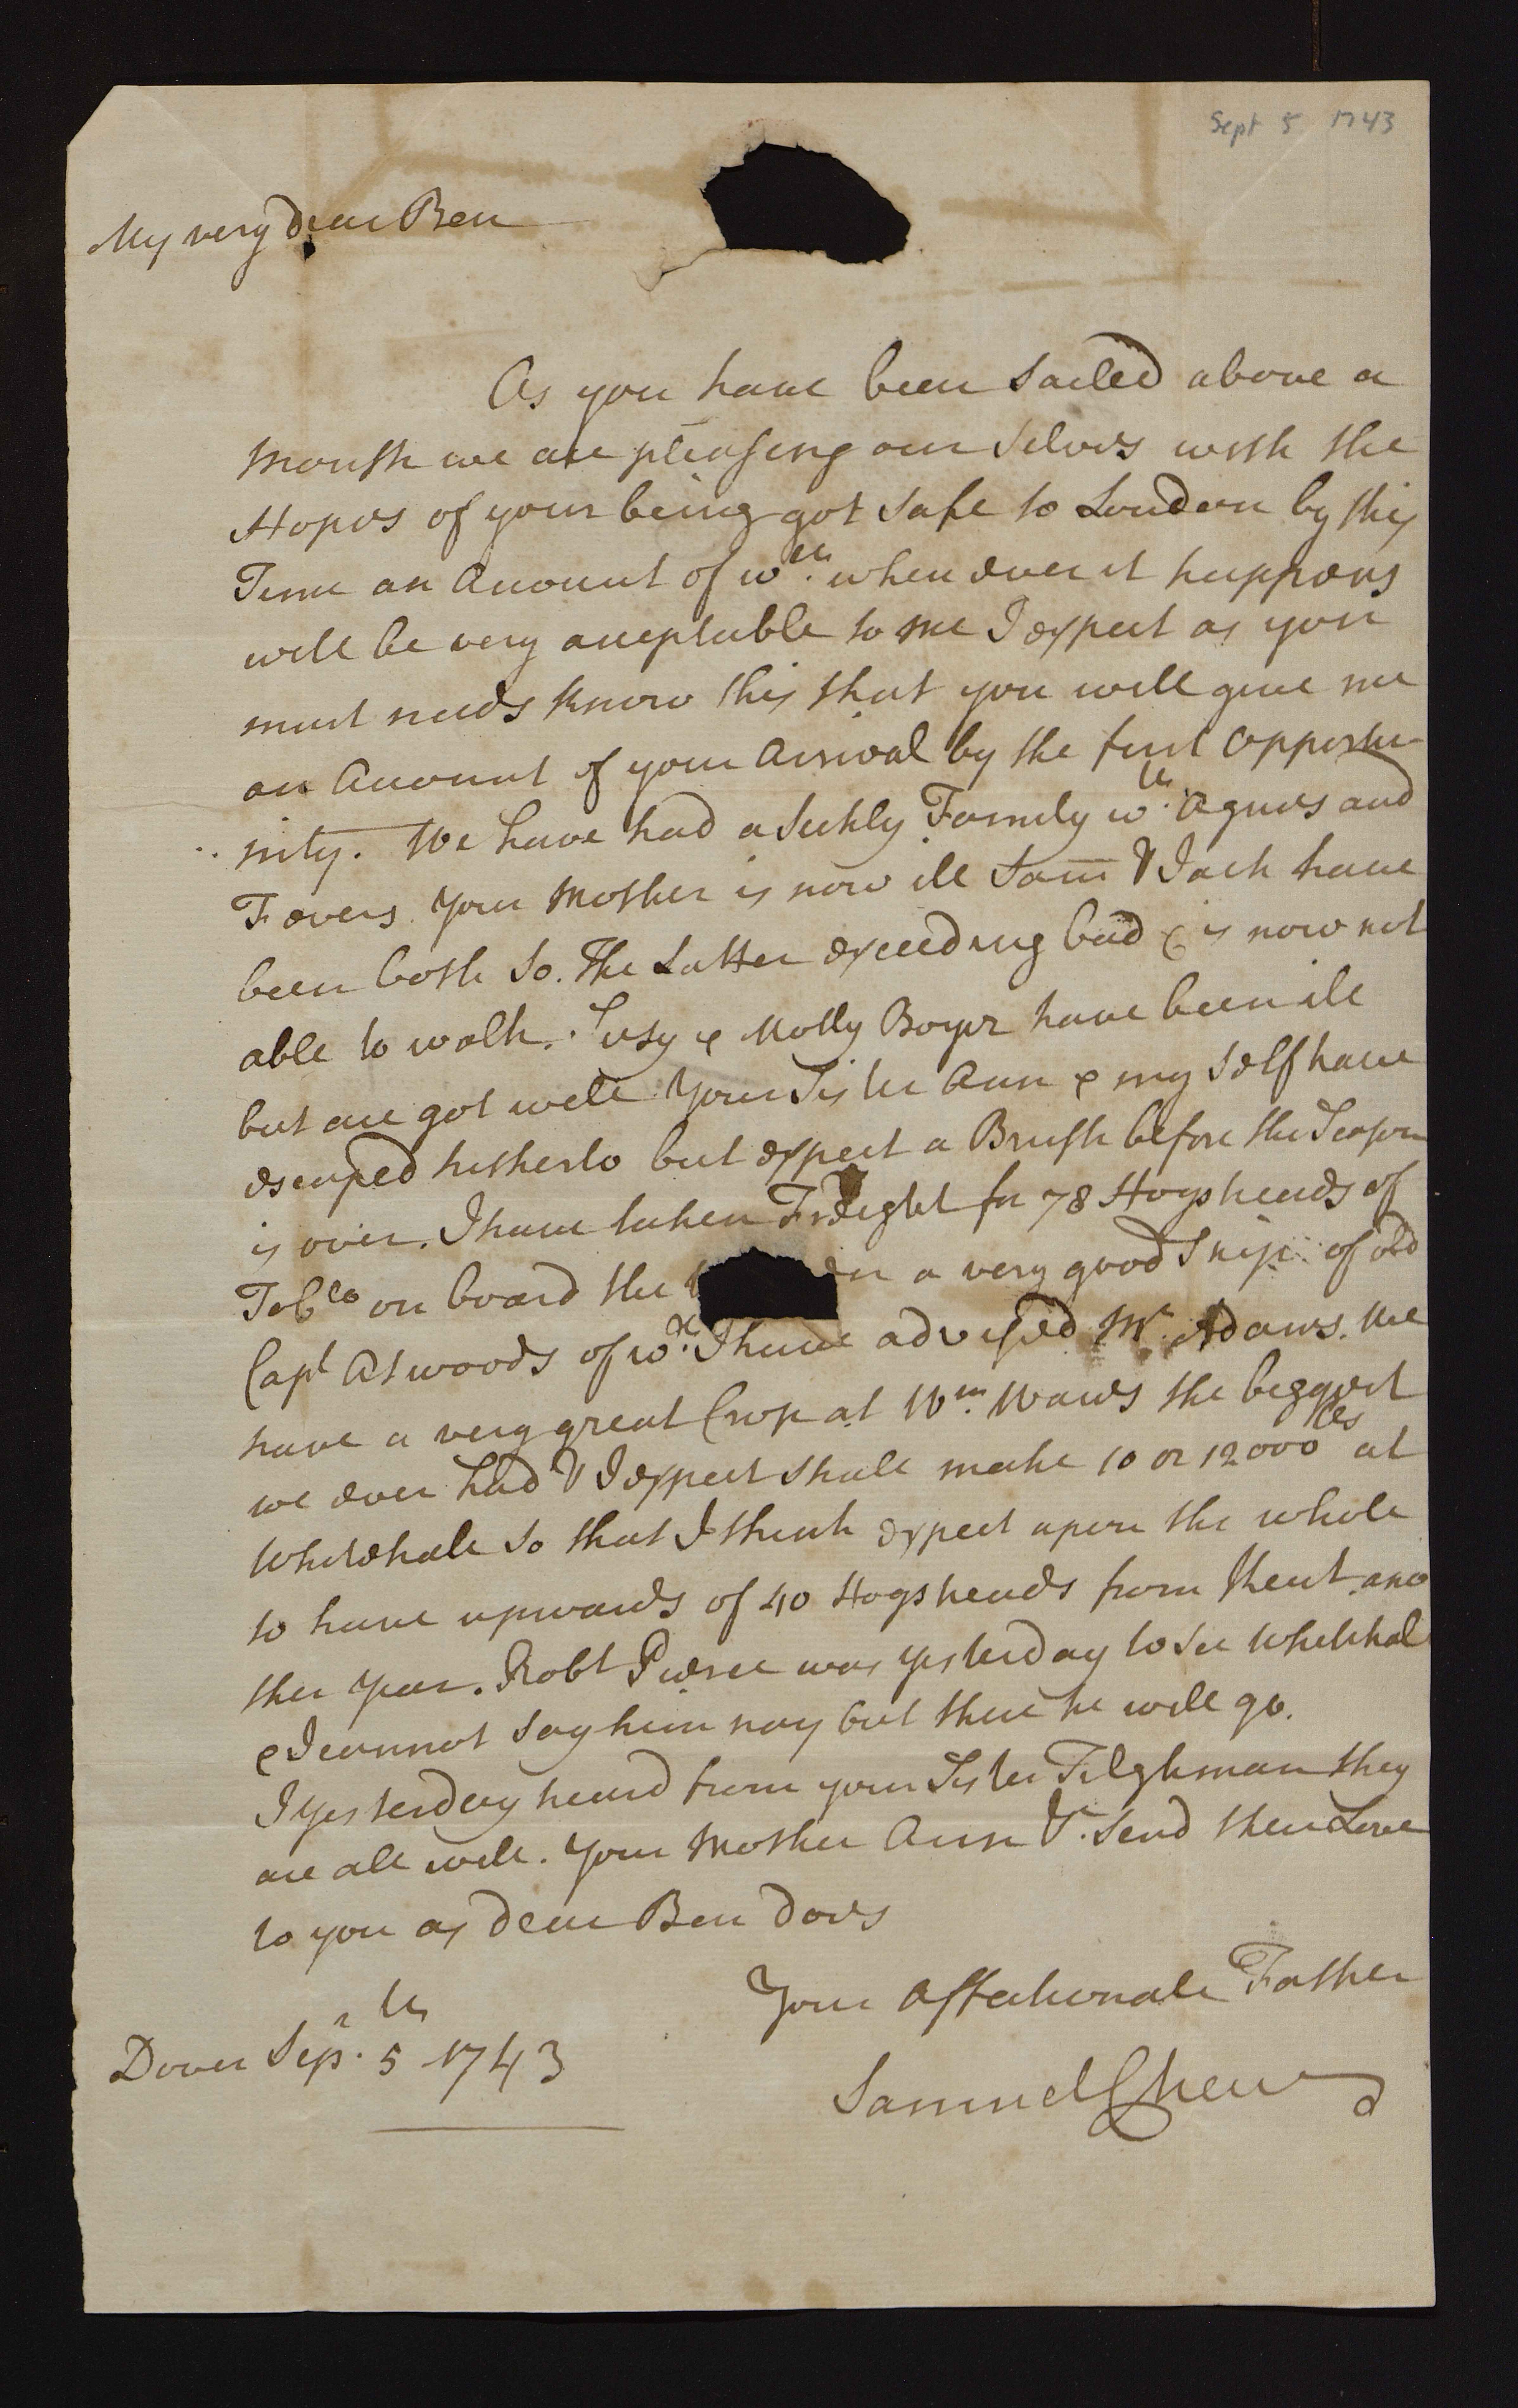 Sept 5 1743
My very dear Ben
As you have been Sailed above a
Month we are pleasing our Selves with the
Hopes of your being got Safe to London by this
Time an Account of wch. when ever it happens
will be very acceptable to me I expect as you
must needs know this that you will give me
an Account of your Arrival by the first Opportu-
nity. We have had a Sickly Family wth. Agues and
Fevers. Your Mother is now ill Sam & Jack have
been both So. The Latter exceeding bad & is now not
able to walk. Susy & Molly Boyer have been ill
but are got well Your Sister Ann & my Self have
escaped hitherto but expect a Brush before the Season
is over. I have taken Freight for 78 Hogsheads of
Tobco on board the a very good Ship of old
Capt Atwoods of wch. I have advised Mr. Adams. We
have a very great Crop at Wm. Waws the biggest
we ever had & I expect shall make 10 or 12000 lbs at
Whitehall So that I think expect upon the whole
to have upwards of 40 Hogsheads from Kent ano
ther Year. Robt Pierce was yesterday to See Whitehal
& I cannot Say him nay but there he will go.
I Yesterday heard from your Sister Tilghman they
are all well. Your Mother Ann &c. Send their Love
to you as dear Ben does
Your Affectionate Father
Samuel Chew
Dover Sepr. 5th 1743